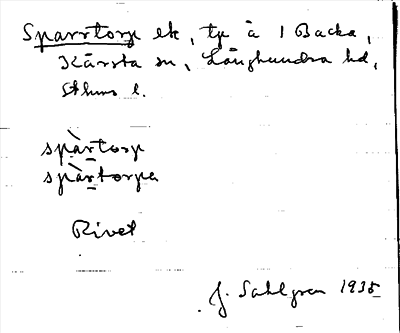 Sparrtorp ek, tp å 1 Backa,
Kårsta sn, Långhundra hd,
Sthms l.
spàrtorp
spàrtorpa
Rivet
J. Sahlgren 1935